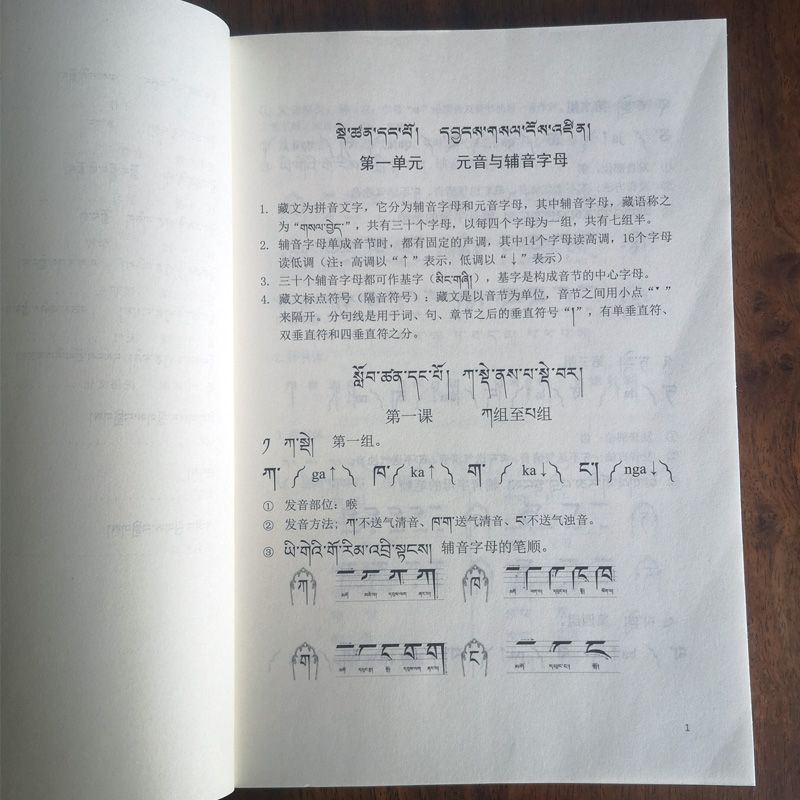 སྡེ་ཚན་དང་པོ། དབྱངས་གསལ་ངོས་འཛིན།
第一单元 元音与辅音字母
1. 藏文为拼音文字，它分为辅音字母和元音字母，其中辅音字母，藏语称之
为“གསལ་བྱེད་”，共有三十个字母，以每四个字母为一组，共有七组半。
2. 辅音字母单成音节时，都有固定的声调，其中14个字母读高调，16个字母
读低调（注：高调以“↑”表示，低调以“↓”表示）
3. 三十个辅音字母都可作基字（མིང་གཞི），基字是构成音节的中心字母。
4. 藏文标点符号（隔音符号）：藏文是以音节为单位，音节之间用小点“་”
来隔开。分句线是用于词、句、章节之后的垂直符号“།”，有单垂直符、
双垂直符和四垂直符之分。
སློབ་ཚན་དང་པོ། ཀ་སྡེ་ནས་པ་སྡེ་བར།
第一课 ཀ组至པ组
༡ ཀ་སྡེ། 第一组。
ཀ་ ( ga↑ ) ཁ་ ( ka↑ ) ག་ ( ka↓ ) ང་། ( nga↓ )
① 发音部位：喉
② 发音方法；ཀ་不送气清音、ཁ་ག་送气清音、ང་不送气浊音。
③ ཡི་གེའི་གོ་རིམ་འབྲི་སྟངས། 辅音字母的笔顺。
ཀ ཁ
ག ང
1